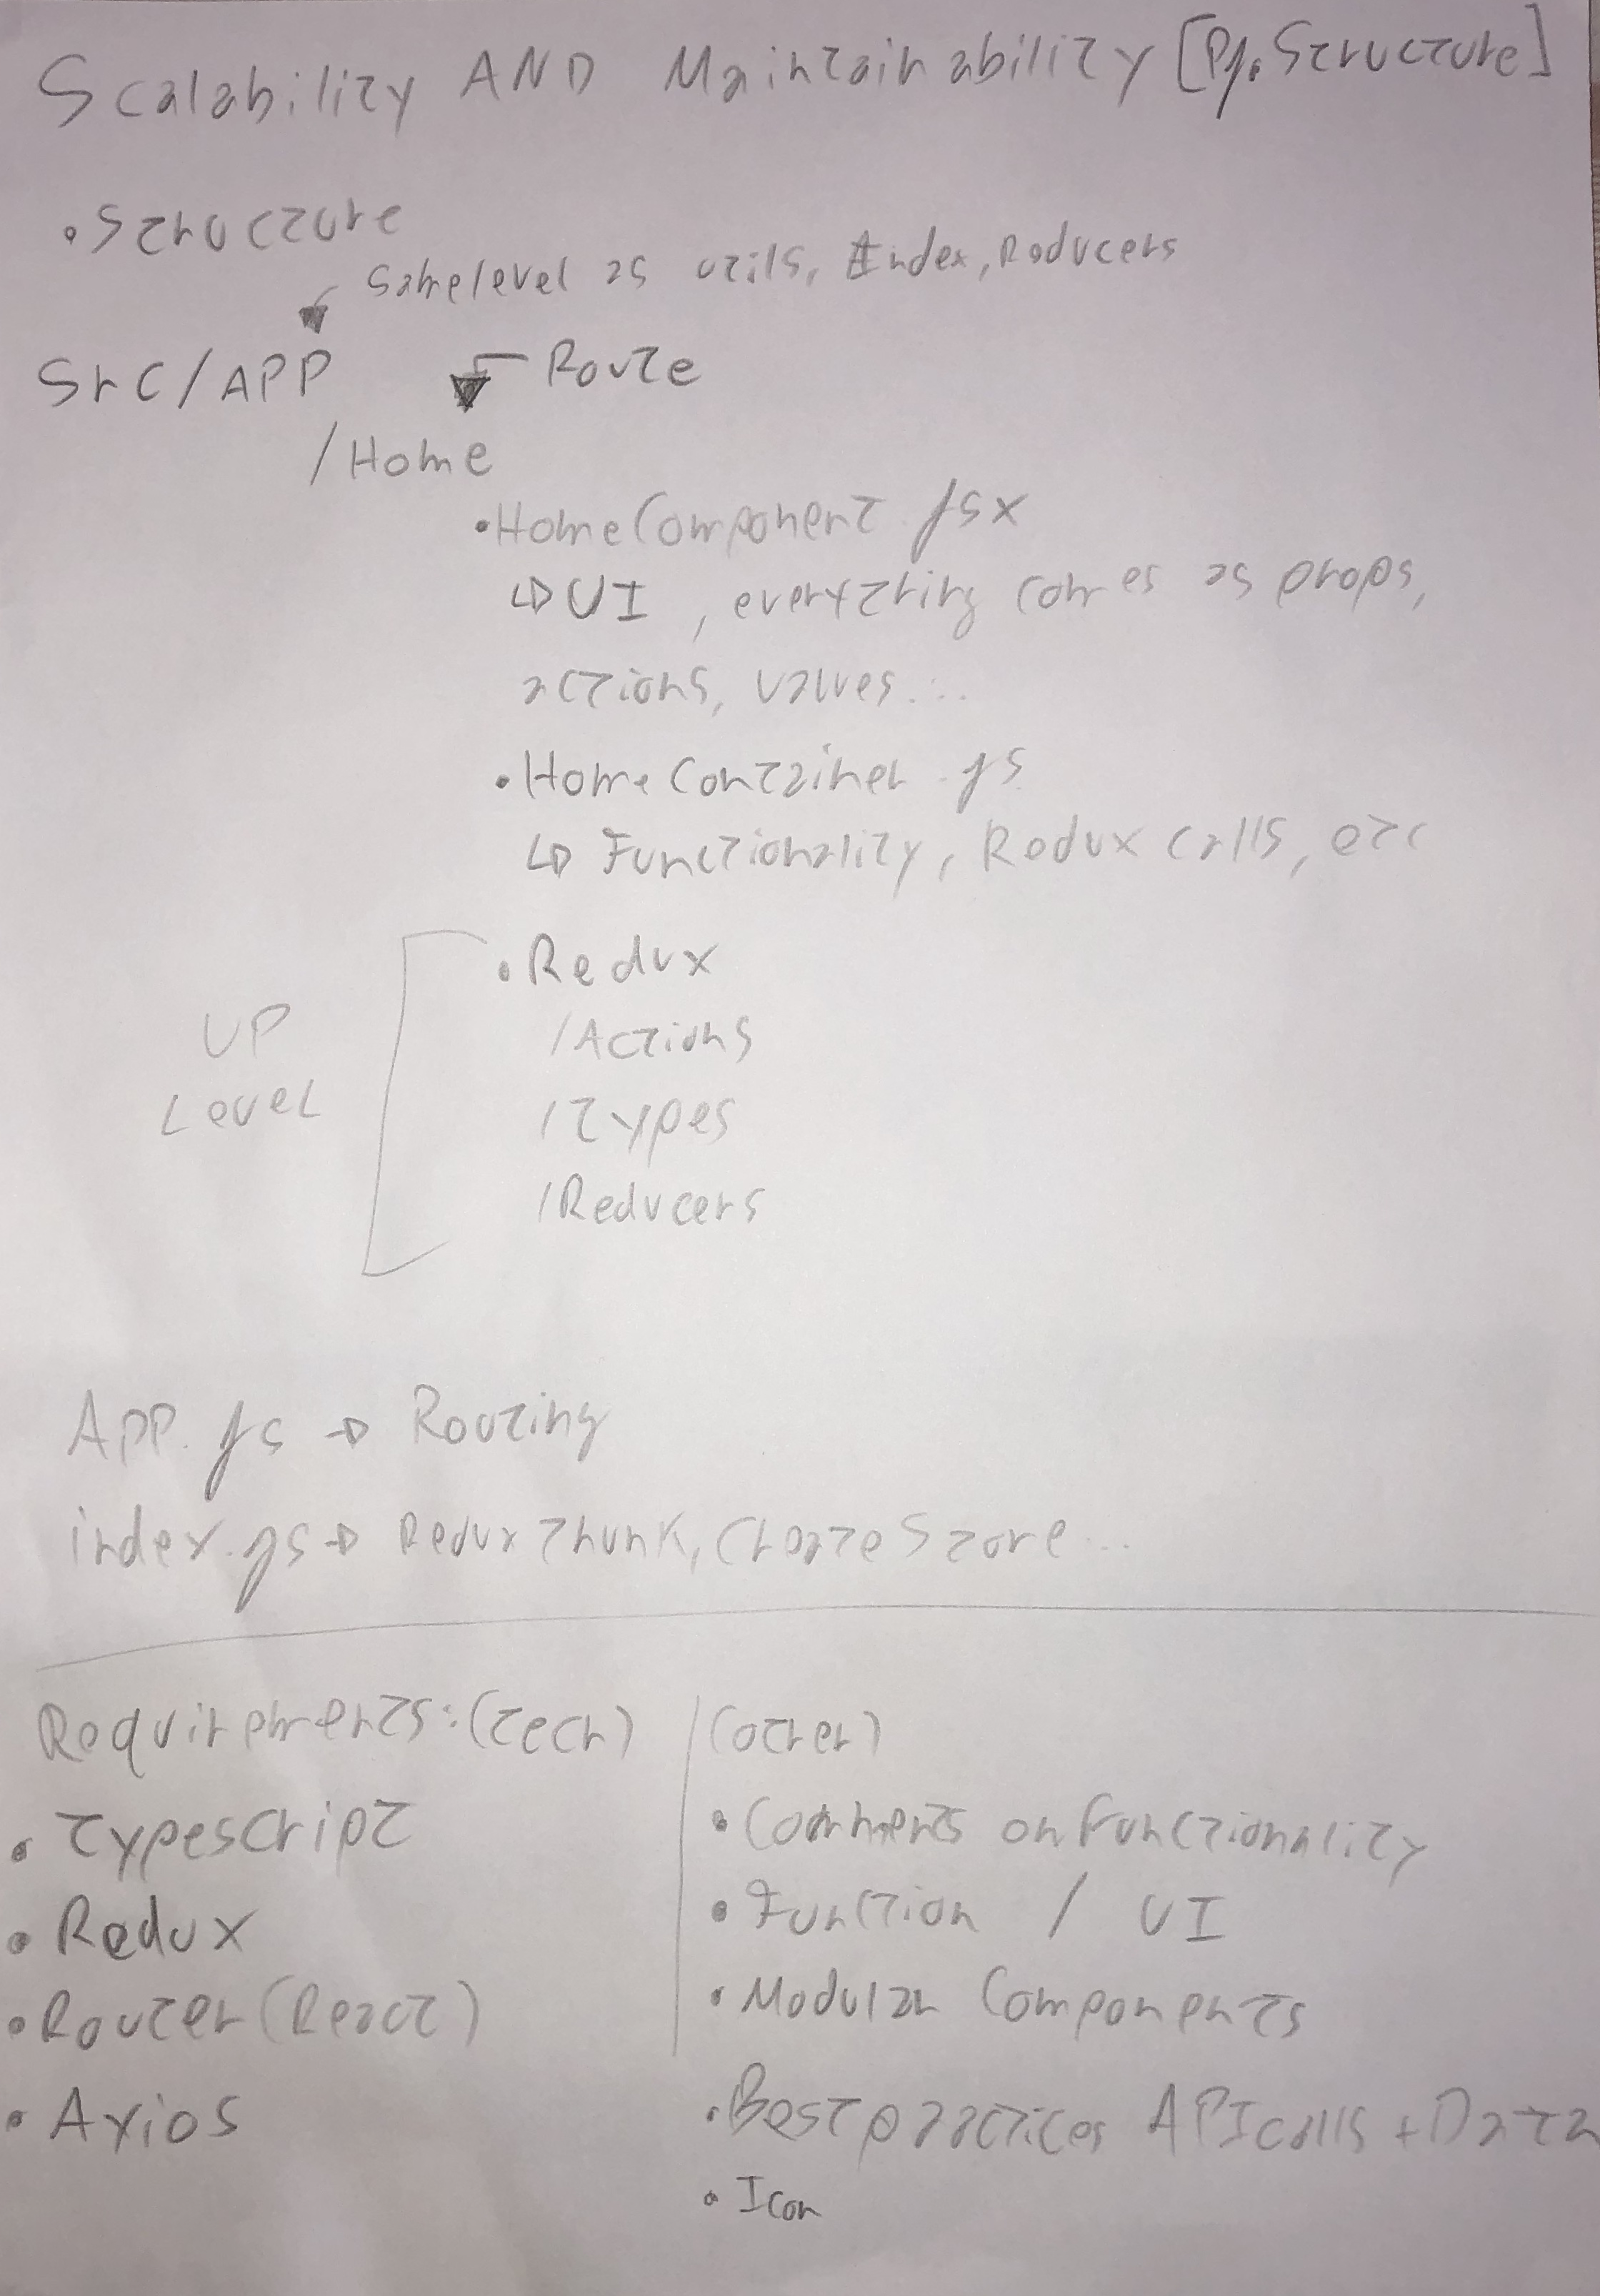 Scalability AND Maintainability [Pj. Structure]
• Structure
Same level as utils, Index, Reducers
Src/APP
Route
/Home
• HomeComponent.jsx
↳ UI, everything comes as props,
actions, values...
• HomeContainer.js
↳ Functionality, Redux calls, etc
UP
Level
• Redux
/Actions
/Types
/Reducers
APP.js → Routing
index.js → Redux Thunk, Create Store...
Requirements: (tech)
• Typescript
• Redux
• Router (React)
• Axios
(other)
• Comments on functionality
• Function / UI
• Modular Components
• Best practices API calls + Data
• Icon